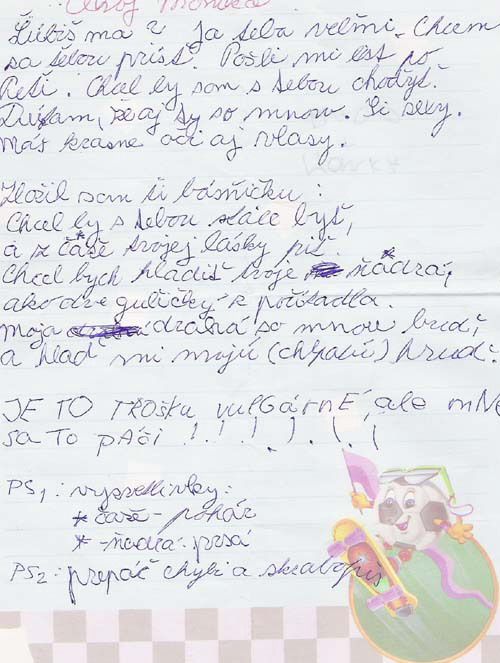 Ahoj Monika
Ľúbiš ma? Ja teba veľmi. Chcem
sa tebou prísť. Pošli mi list po
Peti. Chcel by som s tebou chodyť.
Dúfam, že aj ty so mnow. Si sexy.
Máš krasne oči aj vlasy.
Zložil som ti básničku:
Chcel by s tebou stále byť,
a z čaše* tvojej lásky piť.
Chcel bych hladiť tvoje ňádra*,
ako dve guličky z počítadla.
Moja drahá so mnou buď,
a hlaď mi moju (chlpatú) hruď.
JE TO TROŠKU vulGárNÉ, ale mNE
sa To páči !!!!!!!
PS1: vysvetlivky:
* čaše - pohár
* - ňadra - prsá
PS2: prepáč chyby a škrabopis